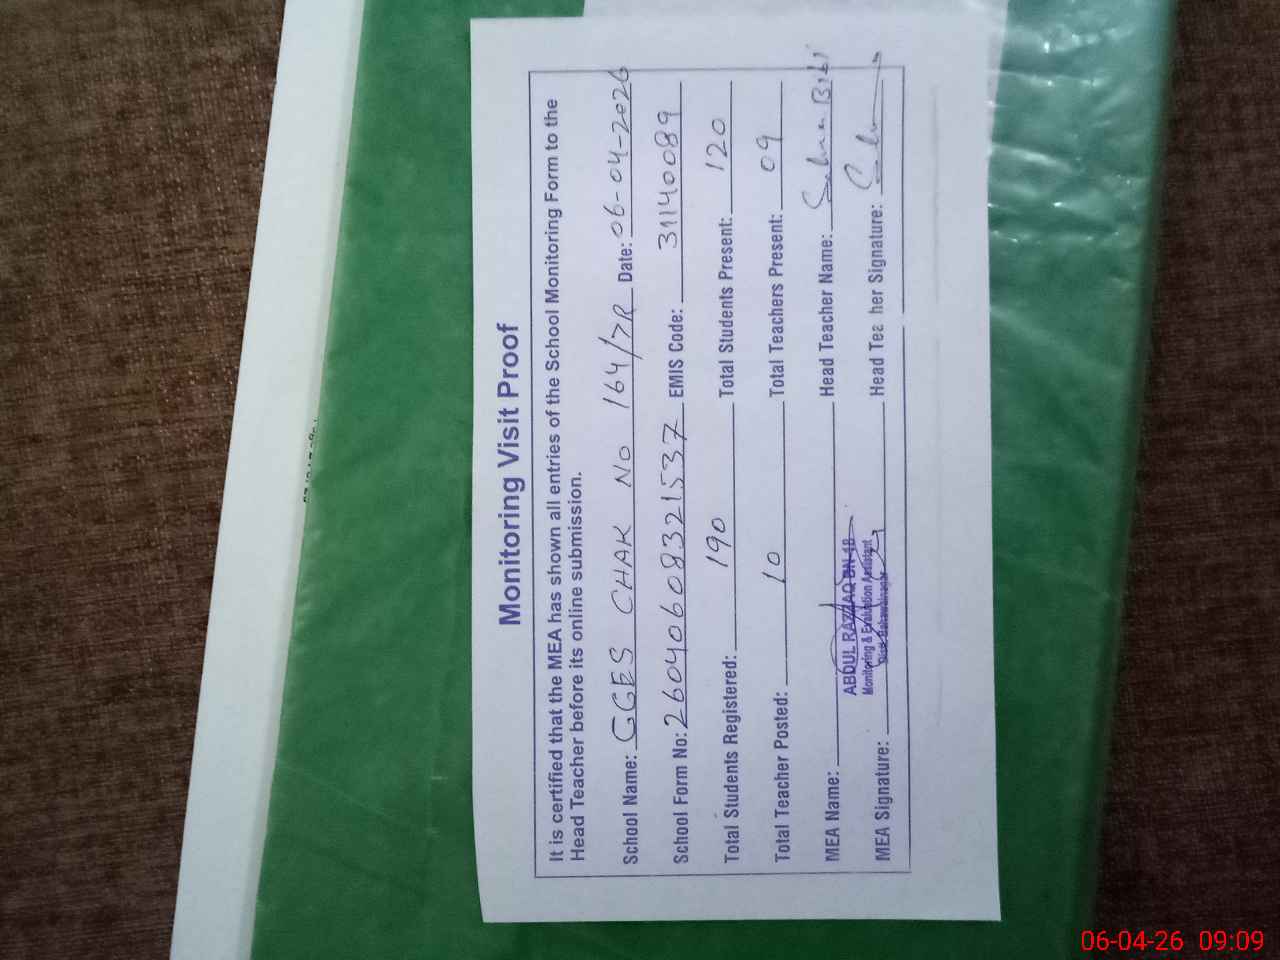 Monitoring Visit Proof
It is certified that the MEA has shown all entries of the School Monitoring Form to the
Head Teacher before its online submission.
School Name: GGES CHAK NO 164/7R Date: 06-04-2026
School Form No: 26040608321537 EMIS Code: 31140089
Total Students Registered: 190 Total Students Present: 120
Total Teacher Posted: 10 Total Teachers Present: 09
MEA Name: Head Teacher Name: Bibi
ABDUL RAZZAQ BN-18
Monitoring & Evaluation Assistant
Distt Bahawalnagar
MEA Signature: Head Tea her Signature:
06-04-26 09:09